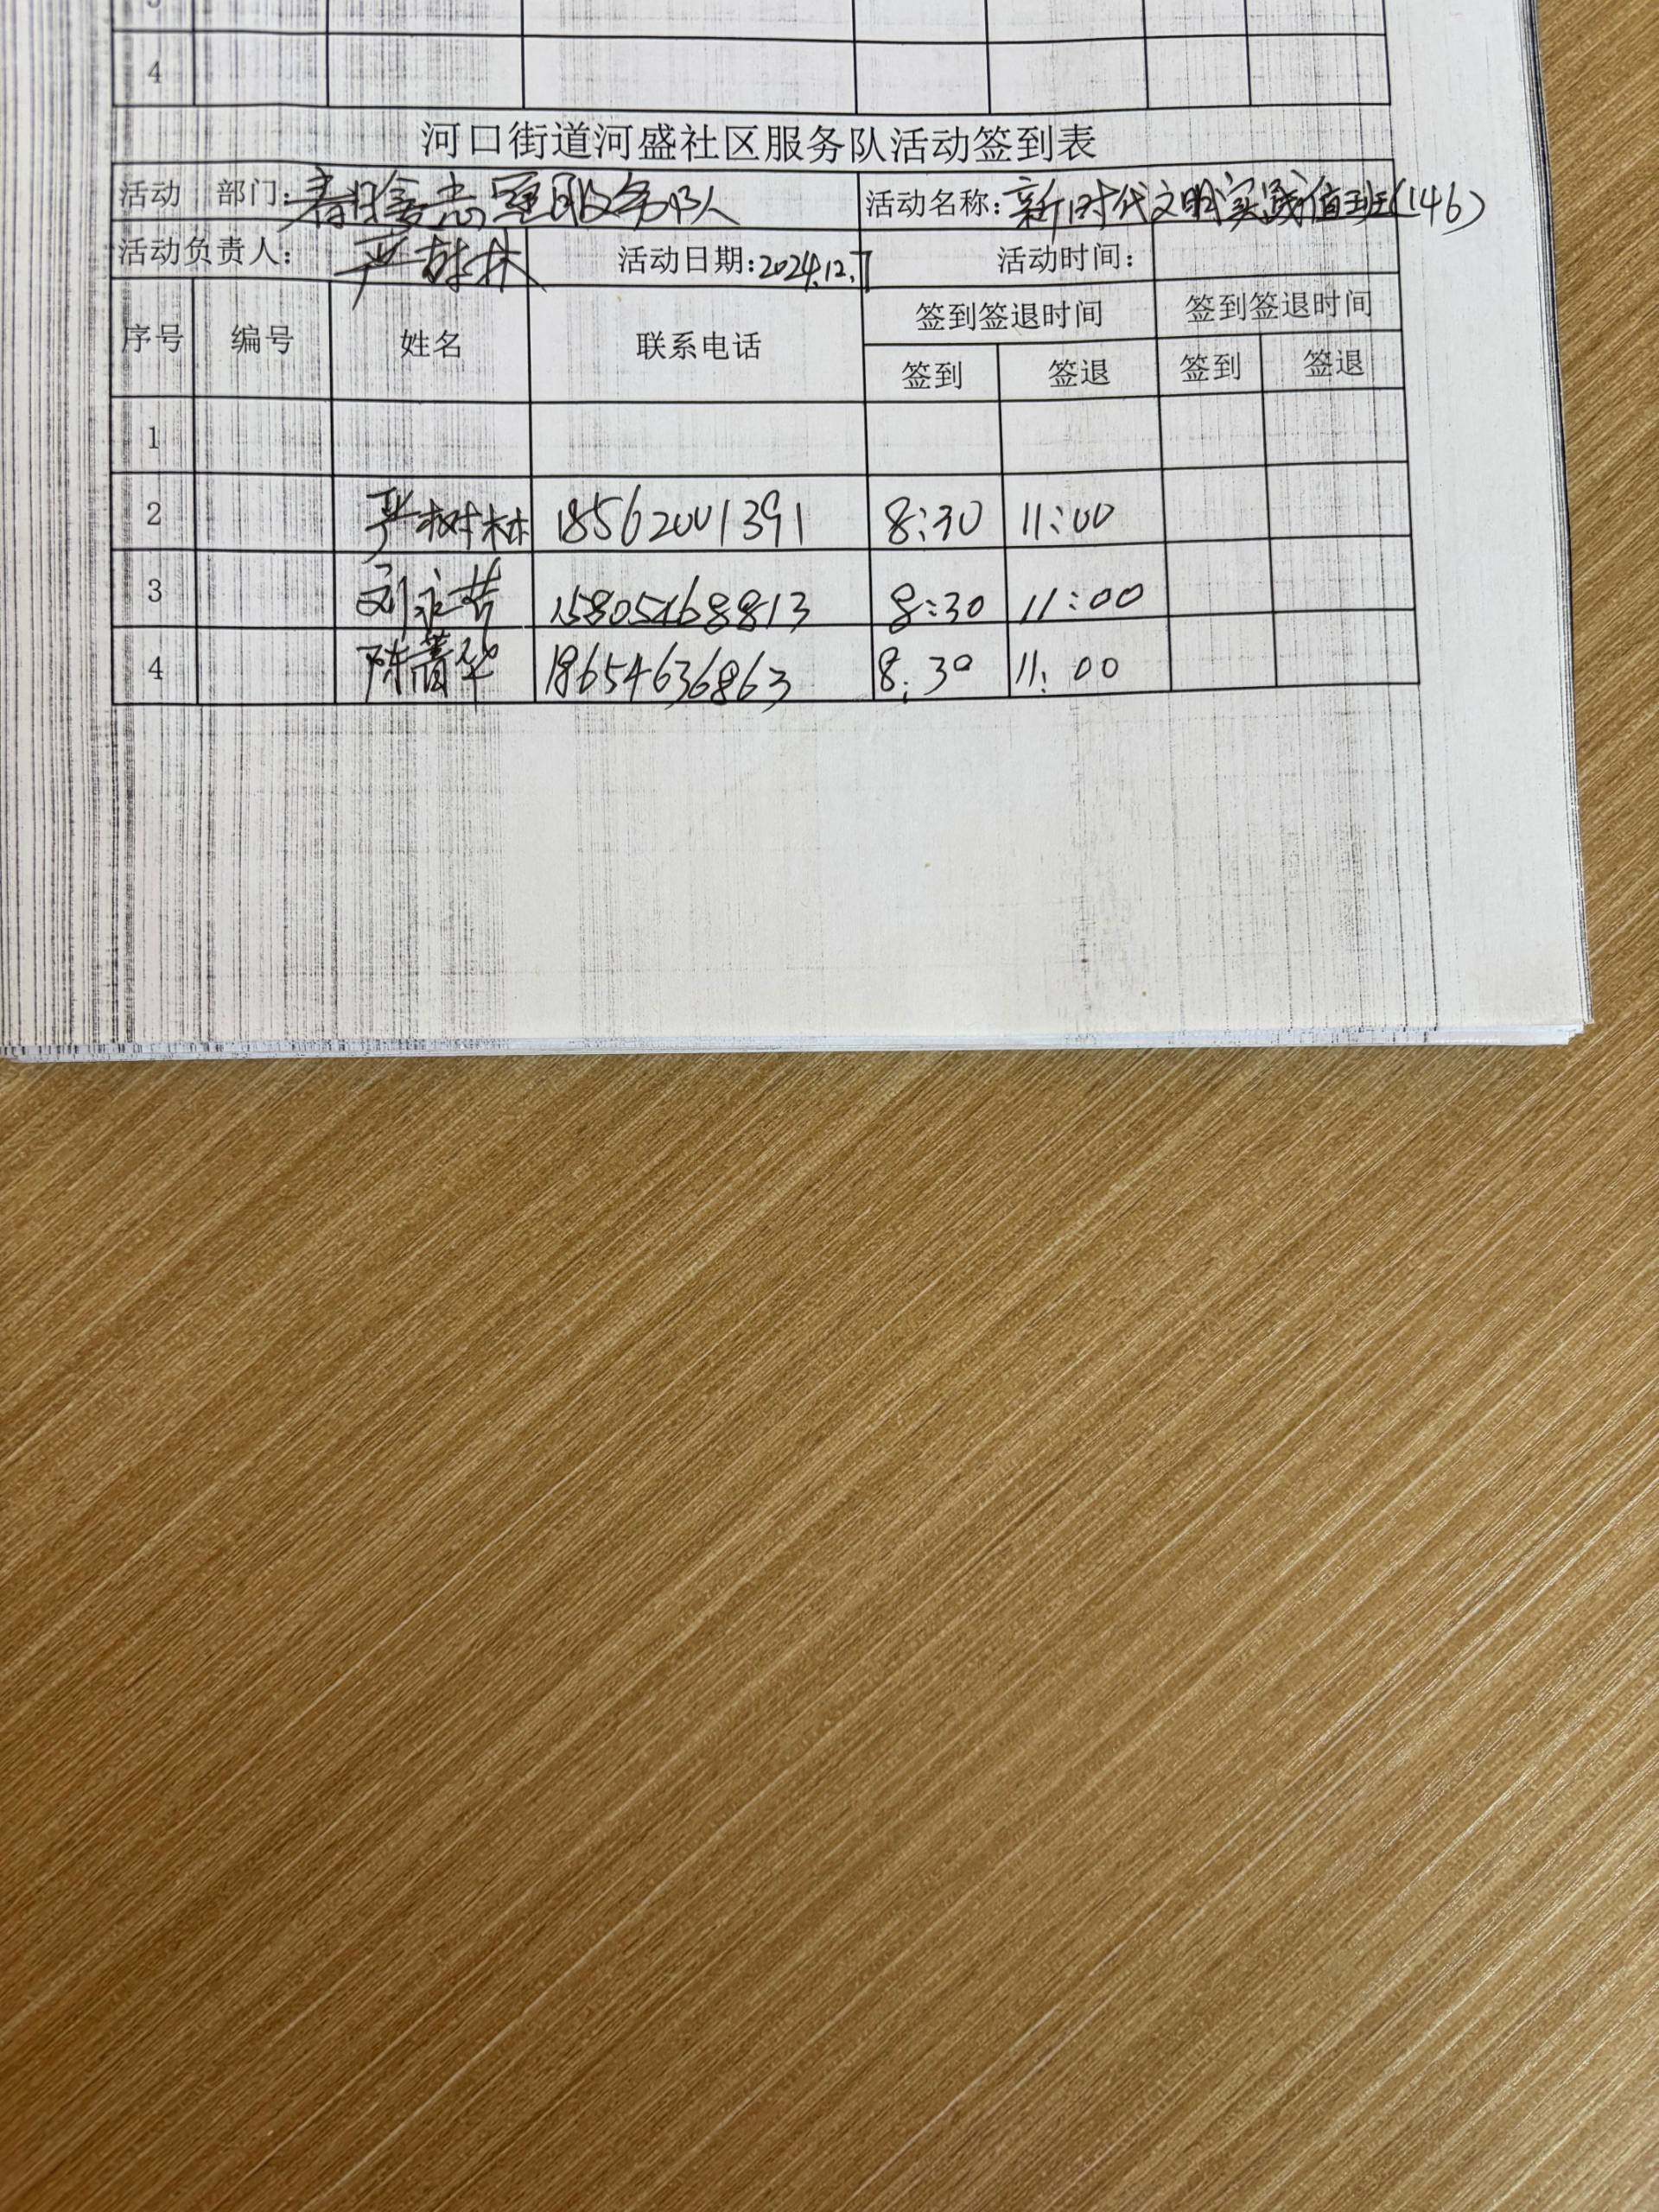 4
河口街道河盛社区服务队活动签到表
活动 部门：春晗志愿服务队 活动名称：新时代文明实践值班(146)
活动负责人：严树林 活动日期：2024.12.7 活动时间：
序号 编号 姓名 联系电话 签到签退时间 签到签退时间
签到 签退 签到 签退
1
2 严树林 18562001391 8:30 11:00
3 15805468813 8:30 11:00
4 陈菁华 18654636863 8:30 11:00